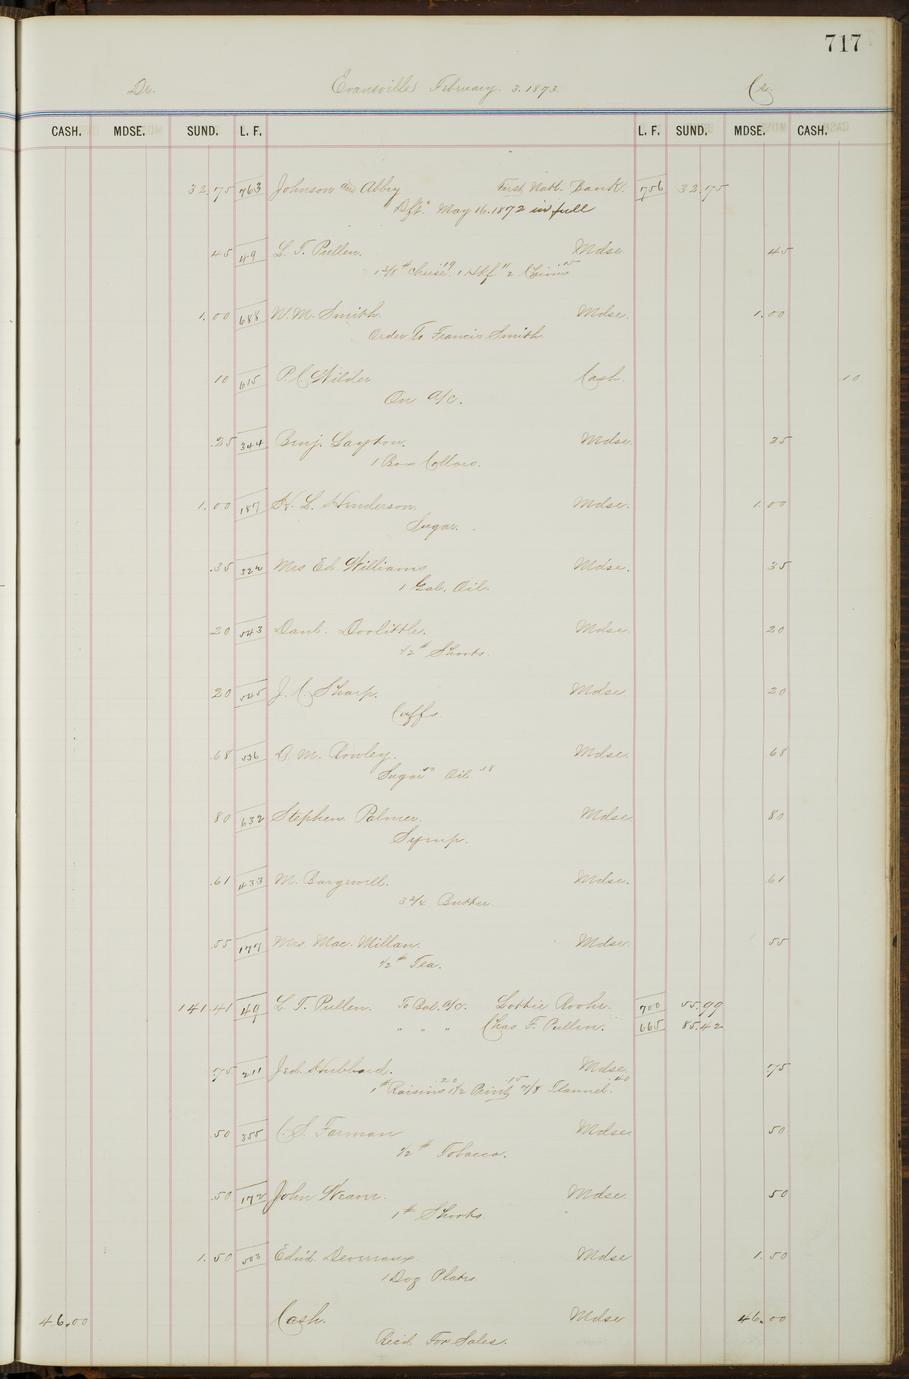 717
Dr. Evansville February. 3. 1893. Cr.
CASH. MDSE. SUND. L. F. L. F. SUND. MDSE. CASH.
32.75 763 Johnson and Abby First Natl. Bank. 756 32.75
Dft. May 16. 1872 in full
45 49 L. T. Pullen. Mdse 45
1 Hkf. 2
1.00 688 W. M. Smith. Mdse. 1.00
Order To Francis Smith
10 615 P. C. Wilder Cash. 10
On a/c.
.25 344 Benj. Layton. Mdse. 25
1 Box Collars.
1.00 187 L. Henderson. Mdse. 1.00
Sugar.
.35 322 Mrs Ed Williams Mdse. 35
1 Gal. Oil.
20 543 Danl. Doolittle. Mdse. 20
1/2 # Shorts.
20 545 J. C. Sharp. Mdse. 20
Cuffs
.68 536 M. Rowley. Mdse. 68
Sugar 50 Oil 18
80 632 Stephen Palmer. Mdse 80
Syrup.
.61 433 M. Bargewell. Mdse. 61
Butter
.55 177 Mrs. Mac. Millan. Mdse. 55
1/2 # Tea.
141.41 49 L. T. Pullen. To Bal. a/c. Lottie 700 55.99
" " " Chas F. Pullen. 665 85.42
75 211 Jed. Hubbard. Mdse. 75
1 # Raisins 20 1 1/2 Print 15 7/8 Flannel. 40
.50 355 C. S. Forman Mdse. 50
1/2 # Tobacco.
.50 172 John Mdse. 50
1 # Shorts.
1.50 503 Edwd. Devereaux Mdse 1.50
1 Doz Plates
46.00 Cash. Mdse 46.00
Recd. For Sales.